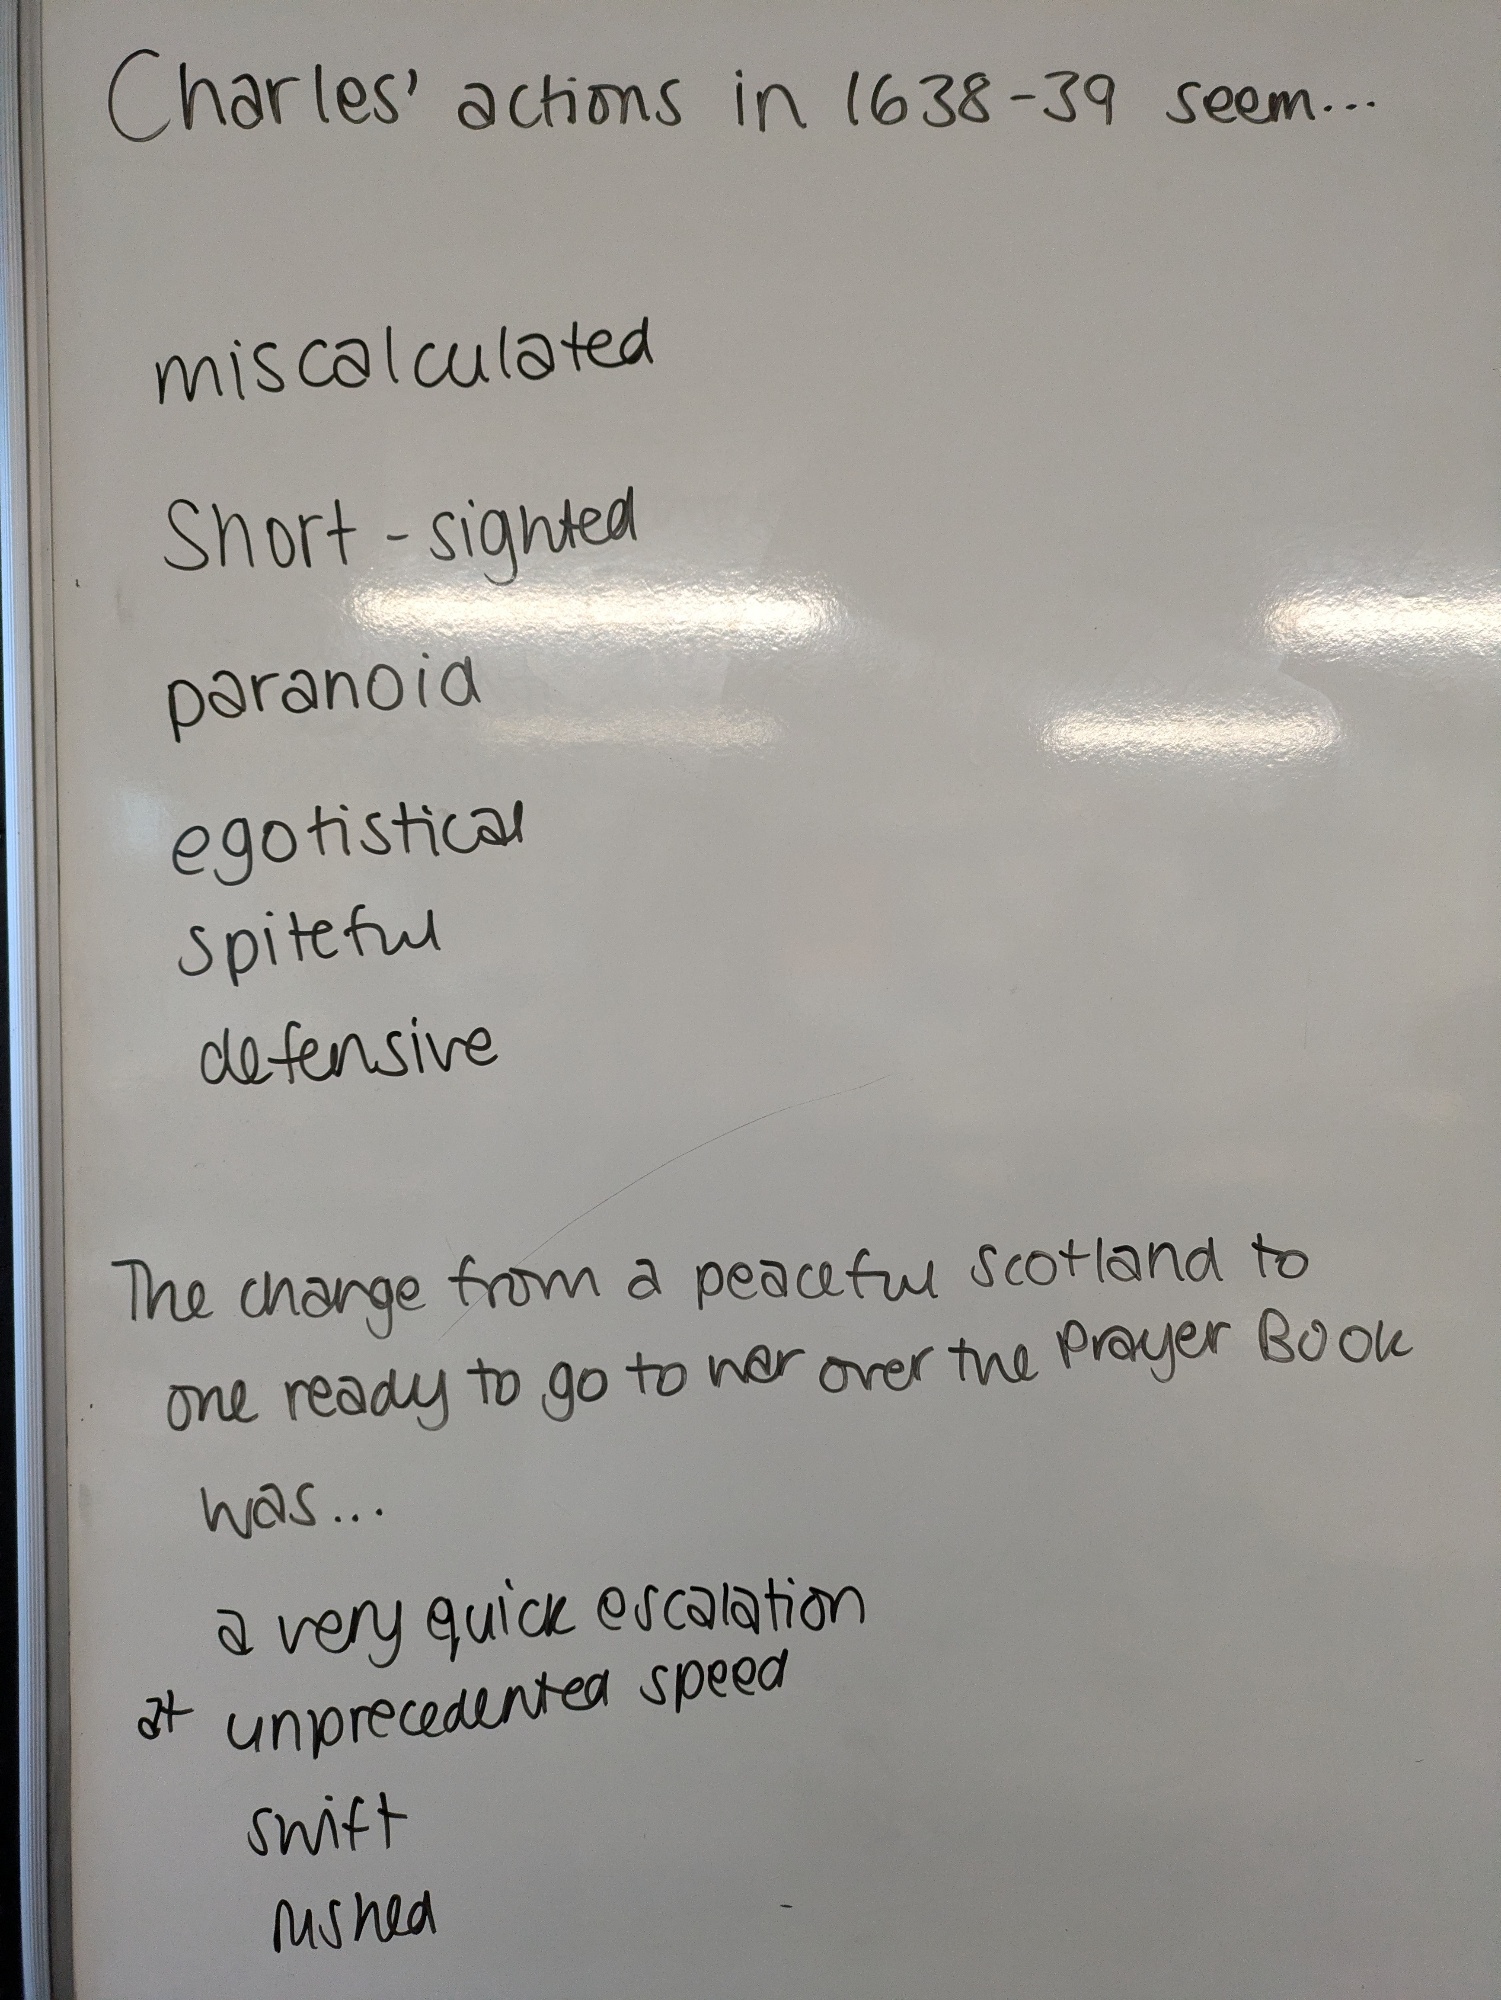 Charles' actions in 1638-39 seem...
miscalculated
Short-sighted
paranoid
egotistical
spiteful
defensive
The change from a peaceful Scotland to
one ready to go to war over the Prayer Book
was...
a very quick escalation
at unprecedented speed
swift
rushed